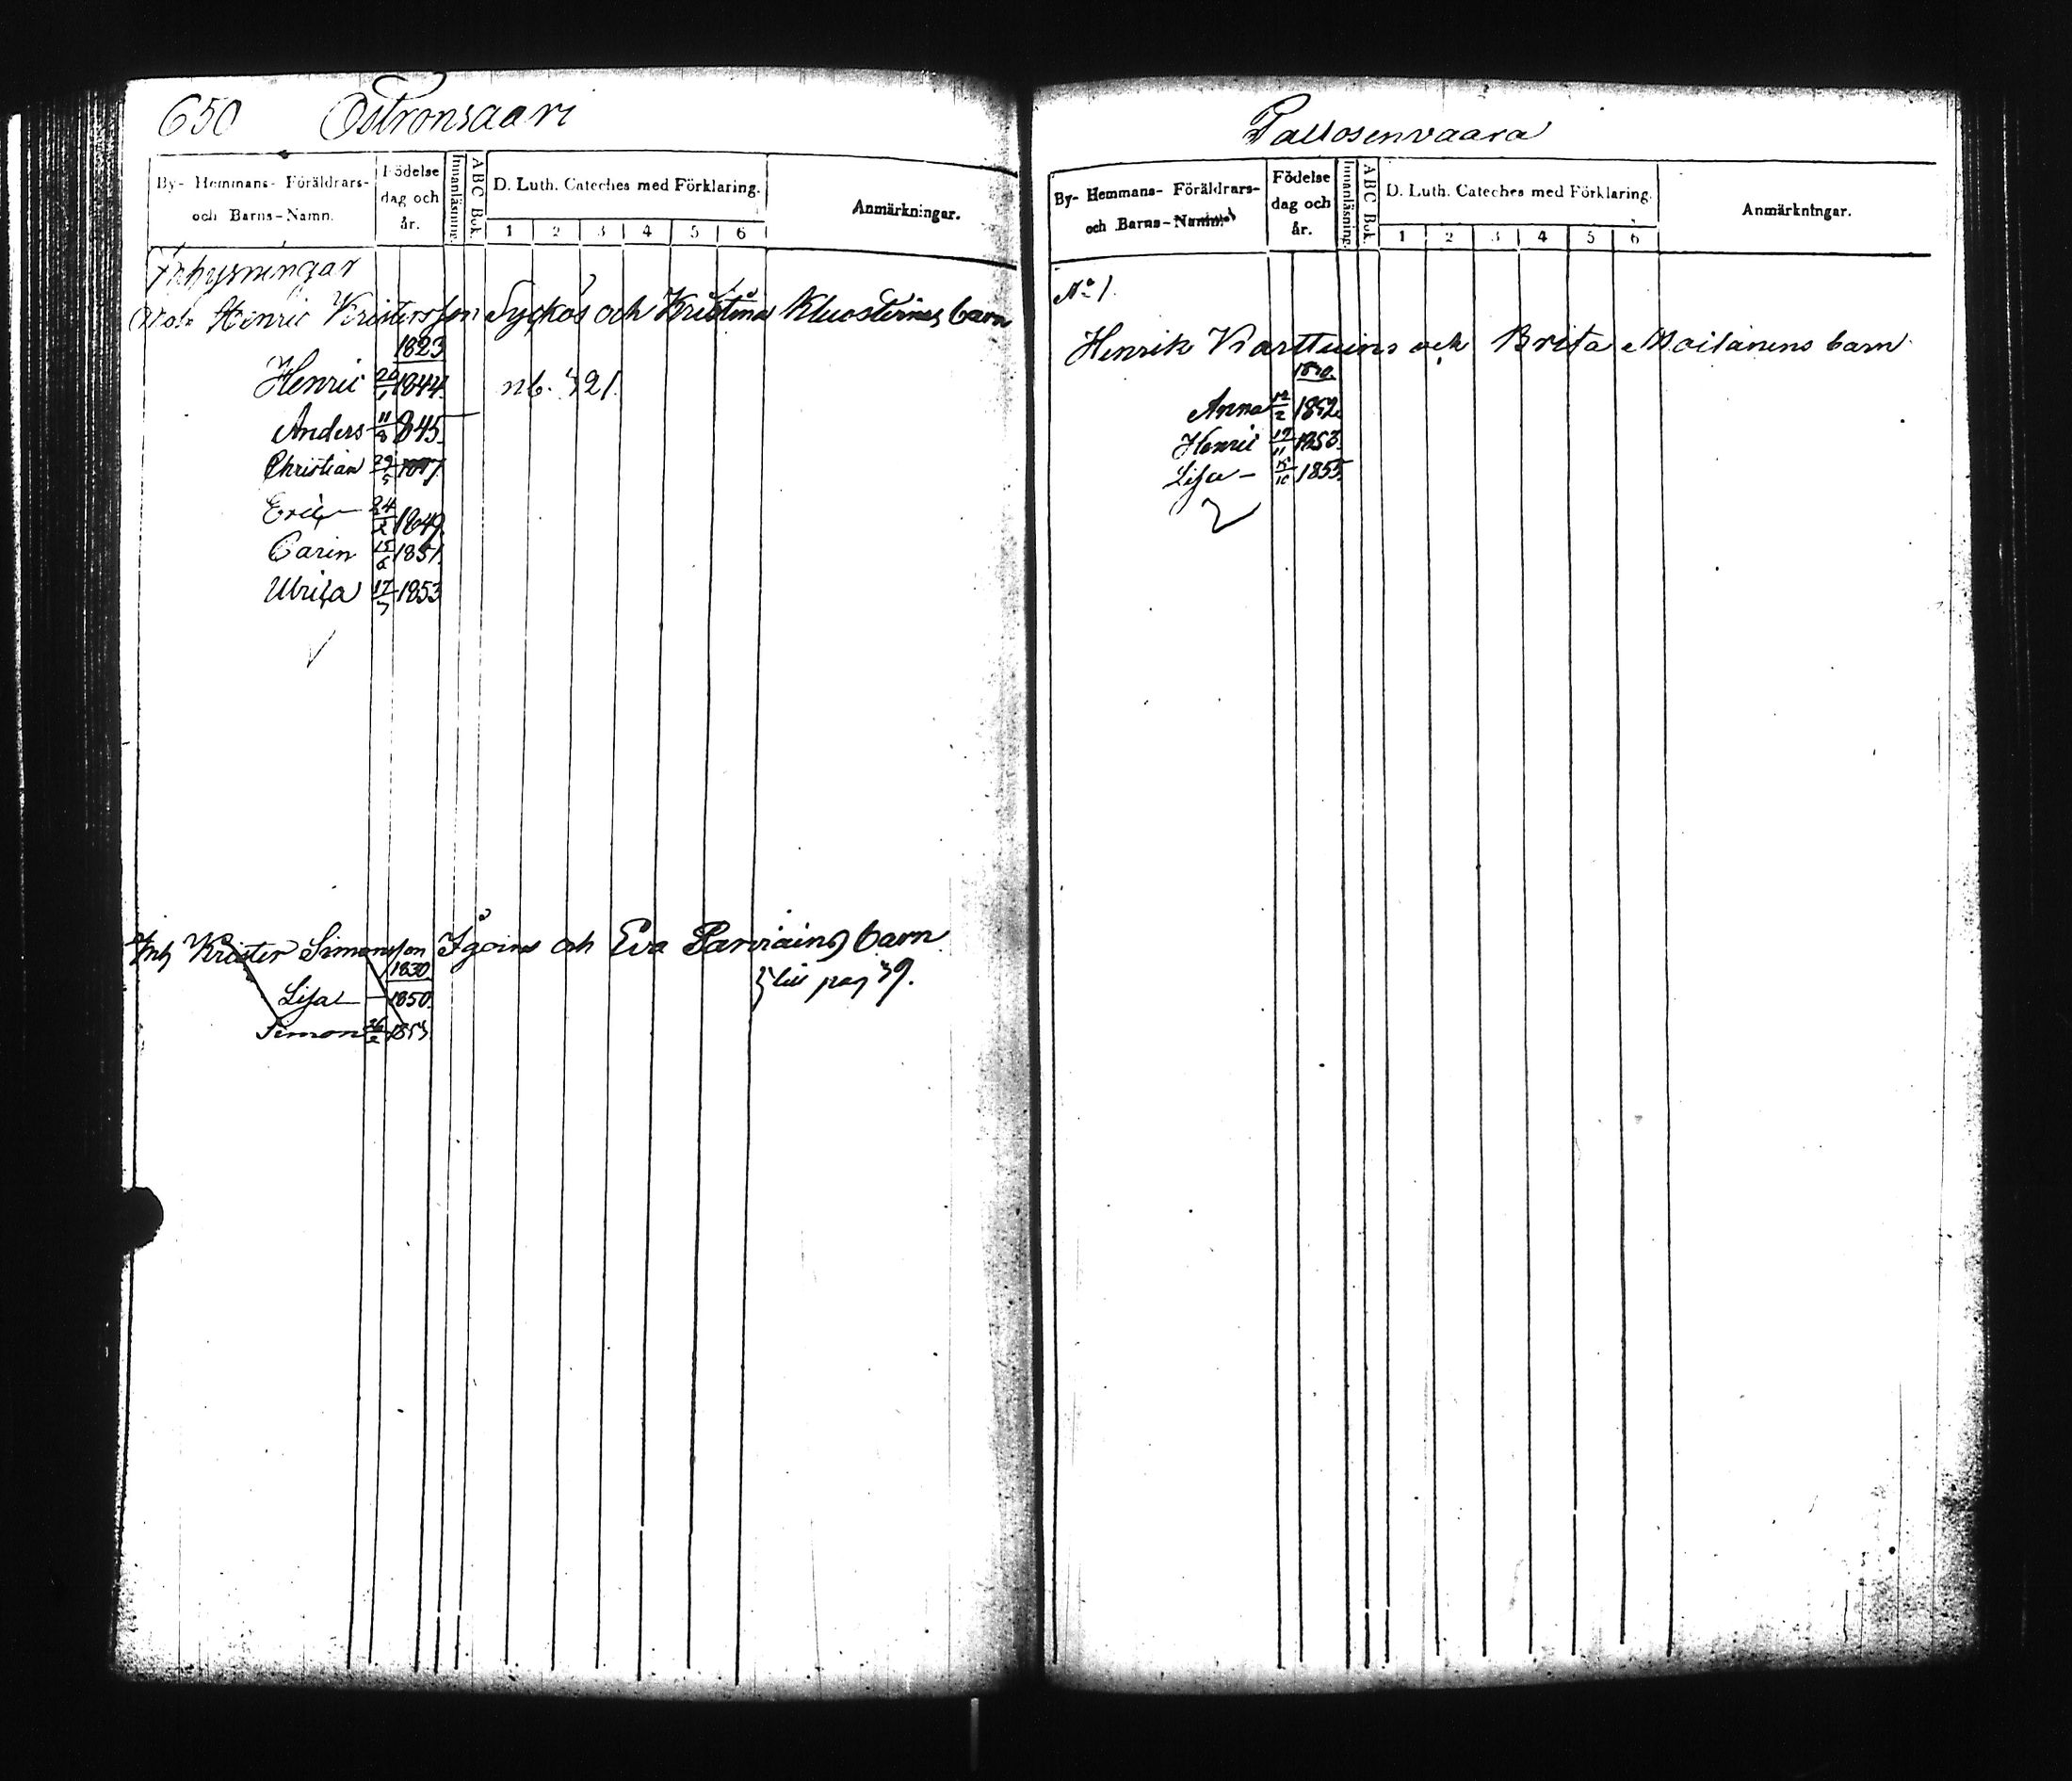 650 Ostronsaari
By- Hemmans- Föräldrars- och Barns-Namn.
Födelse dag och år.
Innanläsning.
ABC Bok.
D. Luth. Cateches med Förklaring.
1 2 3 4 5 6
Anmärkningar.
Inhysningar
Henric Kristersson och Kristina barn
1823
Henric 20/1 1844. nb. 421.
Anders 11/8 845.
Christian 29/5
Eric 24/2 1849.
Carin 15/6 1851.
Ulrica 17/7 1853
Inh Krister Simonsson Igoins och Eva Parviains barn
1830.
Lisa 1850. till pag 39.
Simon 26/2 1853.
Tallosenvaara
By- Hemmans- Föräldrars- och Barns-Namn.
Födelse dag och år.
Innanläsning.
ABC Bok.
D. Luth. Cateches med Förklaring.
1 2 3 4 5 6
Anmärkningar.
No 1.
Henrik Karttuins och Brita Moilanens barn
Anna 12/2 1852.
Henric 17/11 1853.
Lisa 15/10 1855.